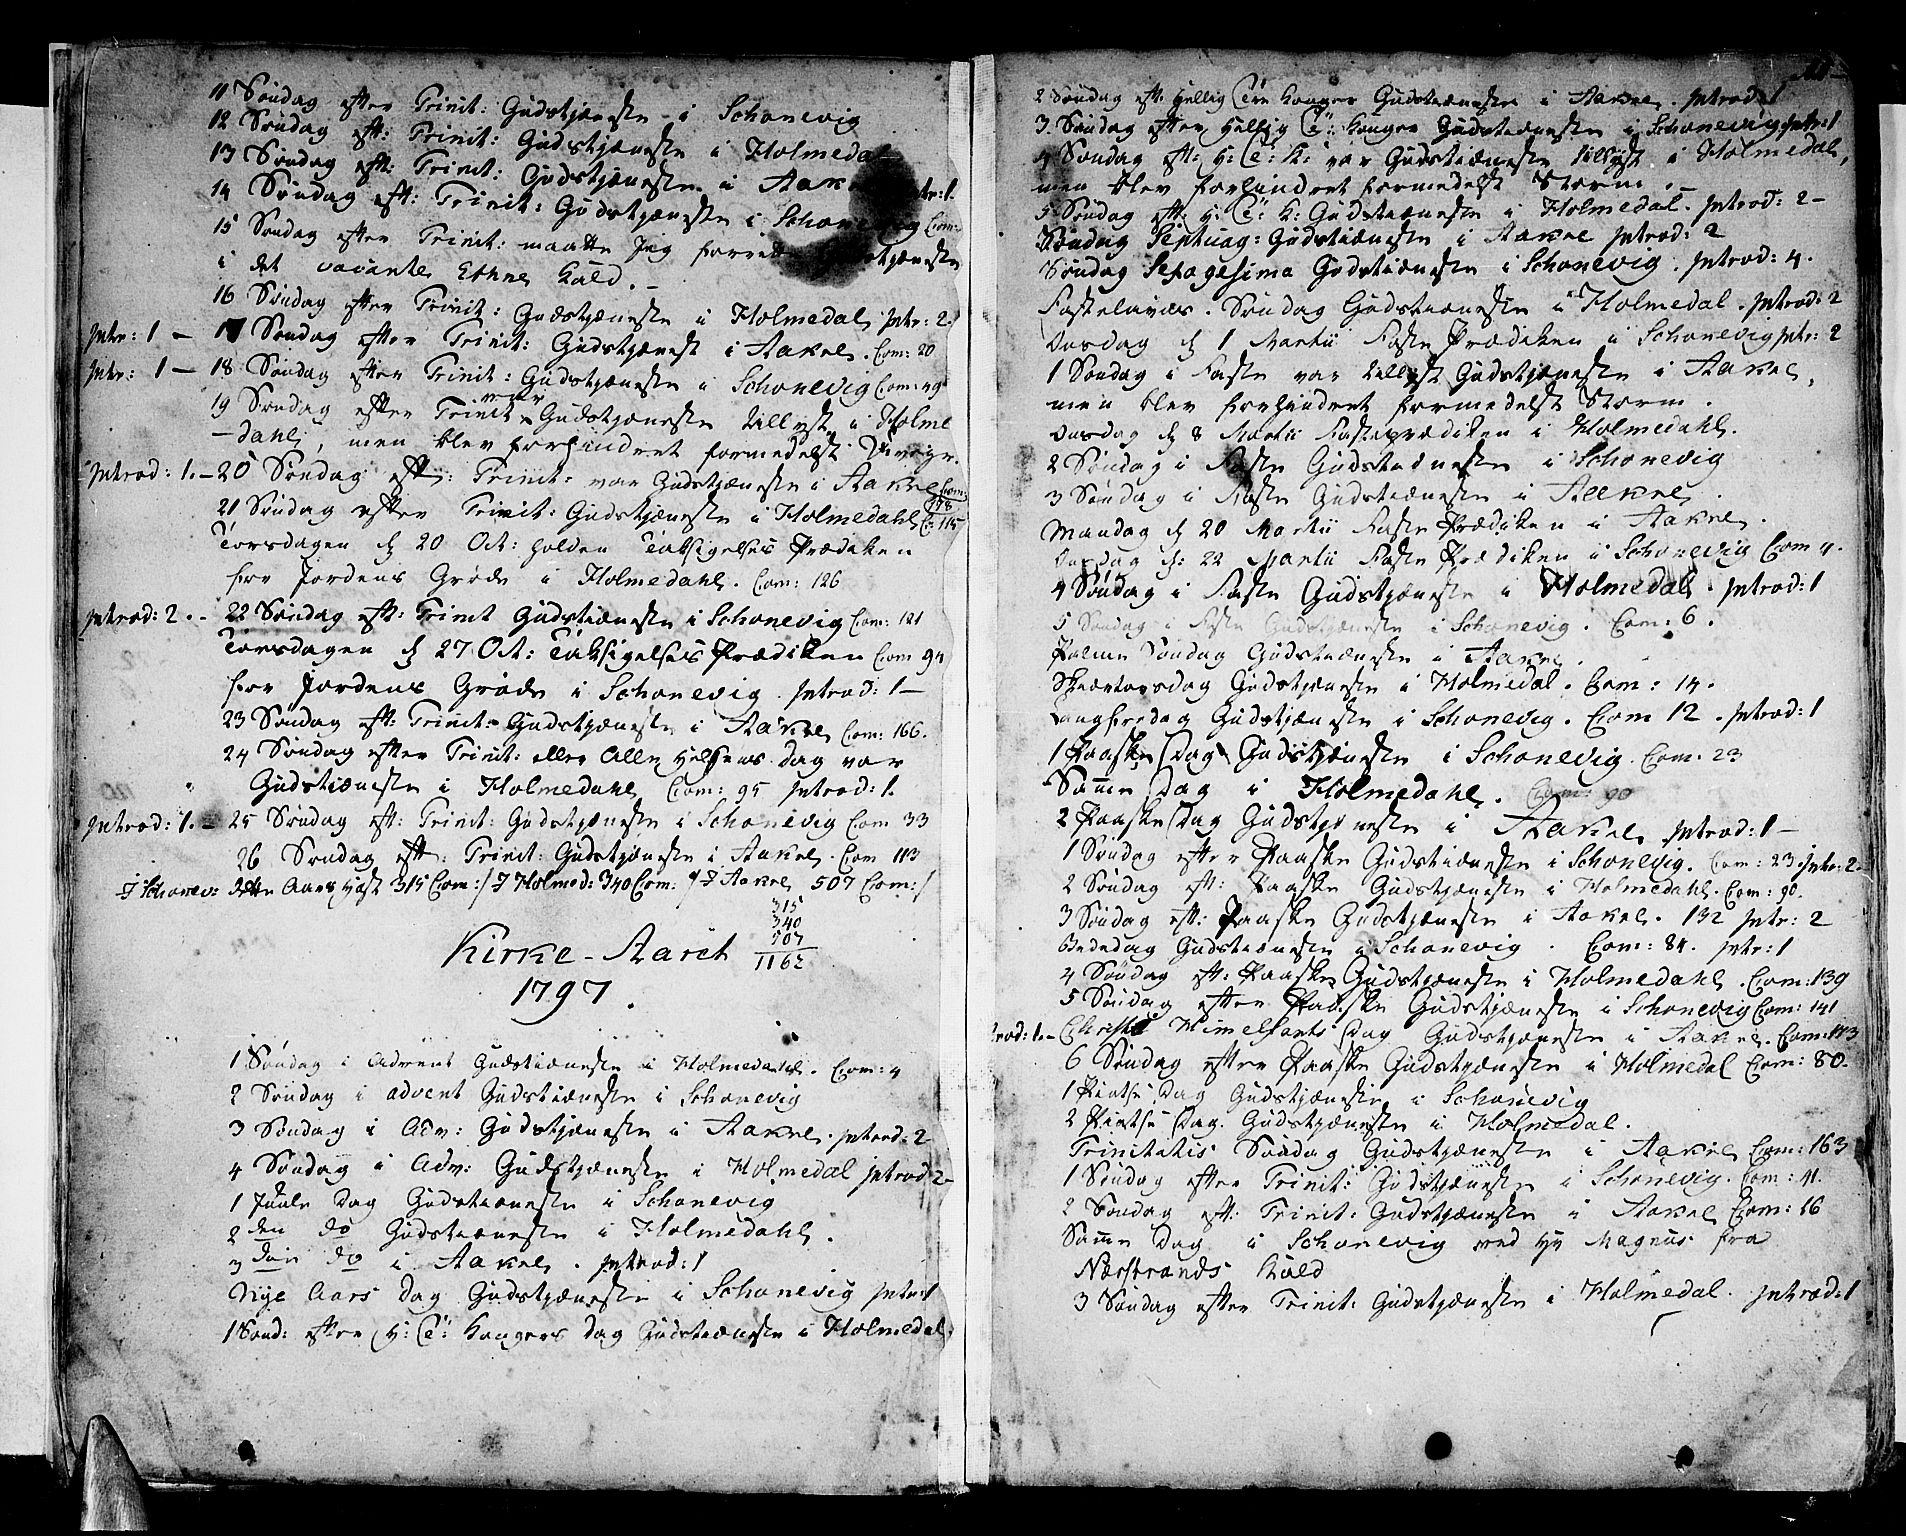 11 Søndag efter Trinit: Gudstjæneste i Schonevig
12 Søndag eft: Trinit: Gudstjæneste i Holmedal
13 Søndag eft: Trinit: Gudstjæneste i Aakre Intr: 1.
14 Søndag eft: Trinit: Gudstjæneste i Schonevig Com:
15 Søndag efter Trinit: maatte jeg forrette Gudstjæneste
i det vacante Ethne Kald. -
16 Søndag efter Trinit: Gudstjæneste i Holmedal Intr: 2.
Intr: 1 - 17 Søndag efter Trinit: Gudstjenest i Aakre. Com: 20
Intr: 1 - 18 Søndag efter Trinit: Gudstjæneste i Schonevig Com: 49
19 Søndag efter Trinit: var Gudstjæneste tillyst i Holme
-dahl, men blev forhindret formedelst Uveyr.
Introd: 1. - 20 Søndag eft: Trinit: var Gudstjæneste i Aakre Com: 118
21 Søndag efter Trinit: Gudstjæneste i Holmedahl C: 115
Torsdagen d 20 Oct: holden Taksigelses Prædiken
for Jordens Grøde i Holmedahl. Com: 126
Introd: 2. - 22 Søndag eft: Trinit Gudstiæneste i Schonevig Com: 121
Torsdagen d 27 Oct: Taksigelses Prædiken Com 94
for Jordens Grøde i Schonevig. Introd: 1 -
23 Søndag eft: Trinit: Gudstjæneste i Aakre Com: 166.
24 Søndag efter Trinit: eller Alle Helgens dag var
Gudstiæneste i Holmedahl Com: 95 Introd: 1.
Introd: 1. - 25 Søndag eft: Trinit: Gudstjæneste i Schonevig Com 33
26 Søndag eft: Trinit: Gudstjæneste i Aakre. Com 113
I Schonev: dette Aars Høst 315 Com:/ I Holmed: 340 Com: / I Aakre 507 Com:/
315
340
507
1162
Kirke-Aaret
1797.
1 Søndag i Advent Gudstiæneste i Holmedahl. Com: 4
2 Søndag i advent Gudstiæneste i Schonevig
3 Søndag i Adv: Gudstjæneste i Aakre. Introd: 2
4 Søndag i Adv: Gudstjæneste i Holmedal Introd: 2 -
1 Juule Dag Gudstiæneste i Schonevig
2 den do Gudstiæneste i Holmedahl.
3 die do i Aakre. Introd: 1
Nye Aars Dag Gudstjæneste i Schonevig Intr: 1
1 Sønd: efter H: 3: Kongers Dag Gudstiæneste i Holmedal.
2 Søndag eft: Hellig 3re Konger Gudstiæneste i Aakre. Introd: 1
3 Søndag efter Hellig 3: Konger Gudstiæneste i Schonevig Intr: 1
4 Søndag eft: H: 3: K: var Gudstiæneste tillyst i Holmedal,
men blev forhindret formedelst Storm.
5 Søndag eft: H: 3: K: Gudstiæneste i Holmedal. Introd: 2 -
Søndag Septuag: Gudstiæneste i Aakre Introd: 2
Søndag Sexagesima Gudstiæneste i Schonevig. Introd: 4.
Fastelavns Søndag Gudstiæneste i Holmedal. Introd: 2
Onsdag d 1 Martii Faste Prædiken i Schonevig Intr: 2
1 Søndag i Faste var tillyst Gudstjæneste i Aakre,
men blev forhindret formedelst Storm.
Onsdag d 8 Martii Fasteprædiken i Holmedahl.
2 Søndag i Faste Gudstiæneste i Schonevig
3 Søndag i Faste Gudstiæneste i Aakre.
Mandag d 20 Martii Faste Prædiken i Aakre.
Onsdag d: 22 Martii Faste Prædiken i Schonevig Com 4.
4 Søndag i Faste Gudstjæneste i Holmedal. Introd: 1
5 Søndag i Faste Gudstjæneste i Schonevig. Com: 6.
Palme Søndag Gudstiæneste i Aakre.
Skiærtorsdag Gudstjæneste i Holmedal. Com: 14.
Langfredag Gudstjæneste i Schonevig. Com 12. Introd: 1
1 Paaske Dag Gudstjæneste i Schonevig. Com: 23
Samme Dag i Holmedahl. Com: 90
2 Paaske Dag Gudstjæneste i Aakre Introd: 1 -
1 Søndag efter Paaske Gudstiæneste i Schonevig. Com: 23. Intr: 2.
2 Søndag eft: Paaske Gudstjæneste i Holmedahl. Com: 90.
3 Søndag eft: Paaske Gudstjæneste i Aakre. 132 Intr: 2
Bededag Gudstiæneste i Schonevig. Com: 84. Intr: 1
4 Søndag eft: Paaske Gudstjæneste i Holmedahl. Com: 139
5 Søndag efter Paaske Gudstjæneste i Schonevig Com: 141
rod: 1. - Christi Himelfarts Dag Gudstjæneste i Aakre. Com: 113
6 Søndag efter Paaske Gudstjæneste i Holmedal Com: 80.
1 Pintse Dag Gudstjæneste i Schonevig
2 Pintse Dag. Gudstjæneste i Holmedal.
Trinitatis Søndag Gudstjæneste i Aakre Com: 163
1 Søndag efter Trinit: Gudstjæneste i Schonevig. Com: 41.
2 Søndag eft: Trinit: Gudstjæneste i Aakre Com: 16
Samme Dag i Schonevig ved Hr Magnus fra
Nerstrands Kald
3 Søndag efter Trinit: Gudstjæneste i Holmedal. Introd: 1